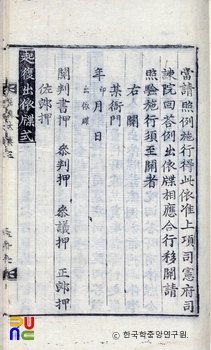 當請照例施行得此依准上項司憲府司
諫院回答例出依牒相應合行移關請
照驗施行須至關者
右關
某衙門
年 印 月 日
出依牒
關 判書押 參判押 參議押 正郎押
佐郎押
起復出依牒式
한국학중앙연구원